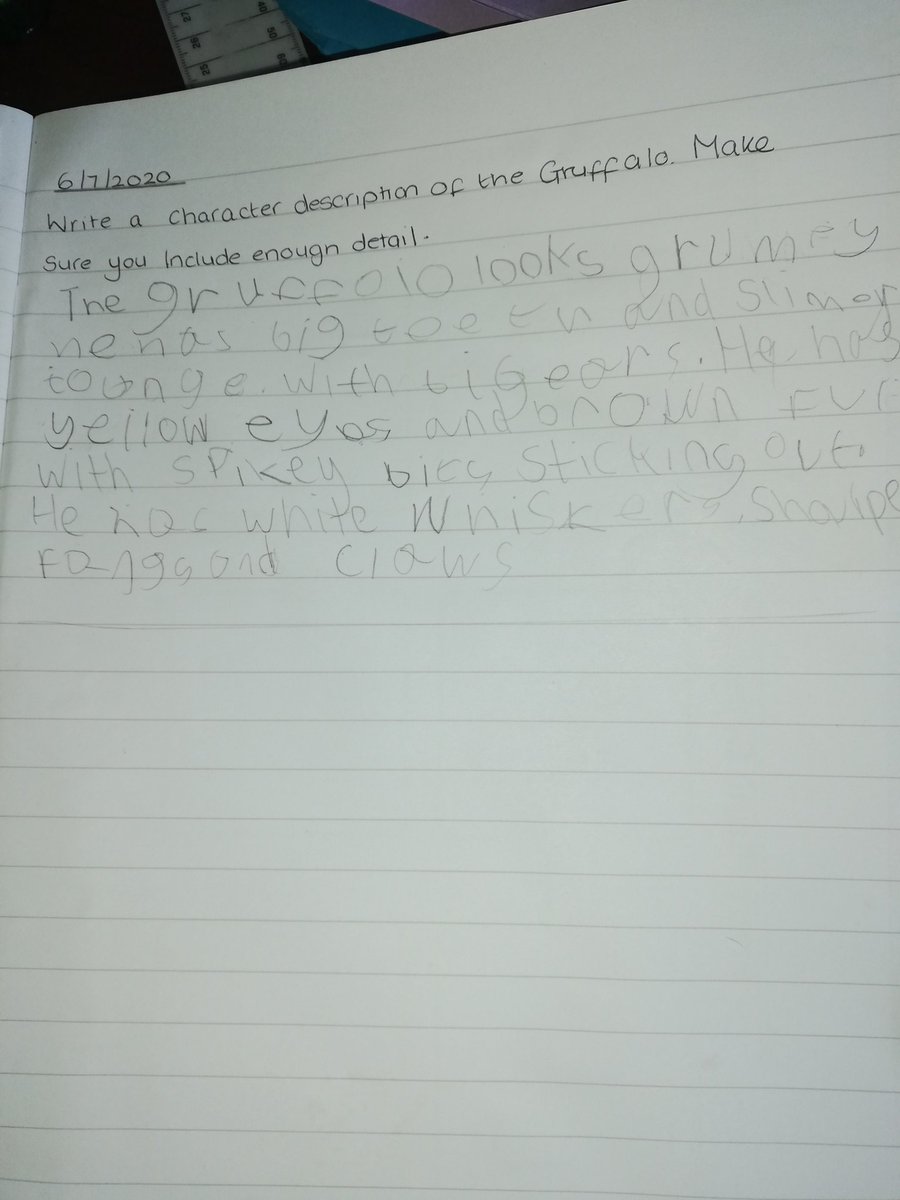 27
26
25
40
50
60
6/7/2020
Write a character description of the Gruffalo. Make
Sure you Include enough detail.
The gruffolo looks grumpy
he has big teeth and slimey
tounge. with big ears. He has
yellow eyes and brown fur
with spikey bits sticking out.
He has white whiskers. Sharpe
fangs and claws